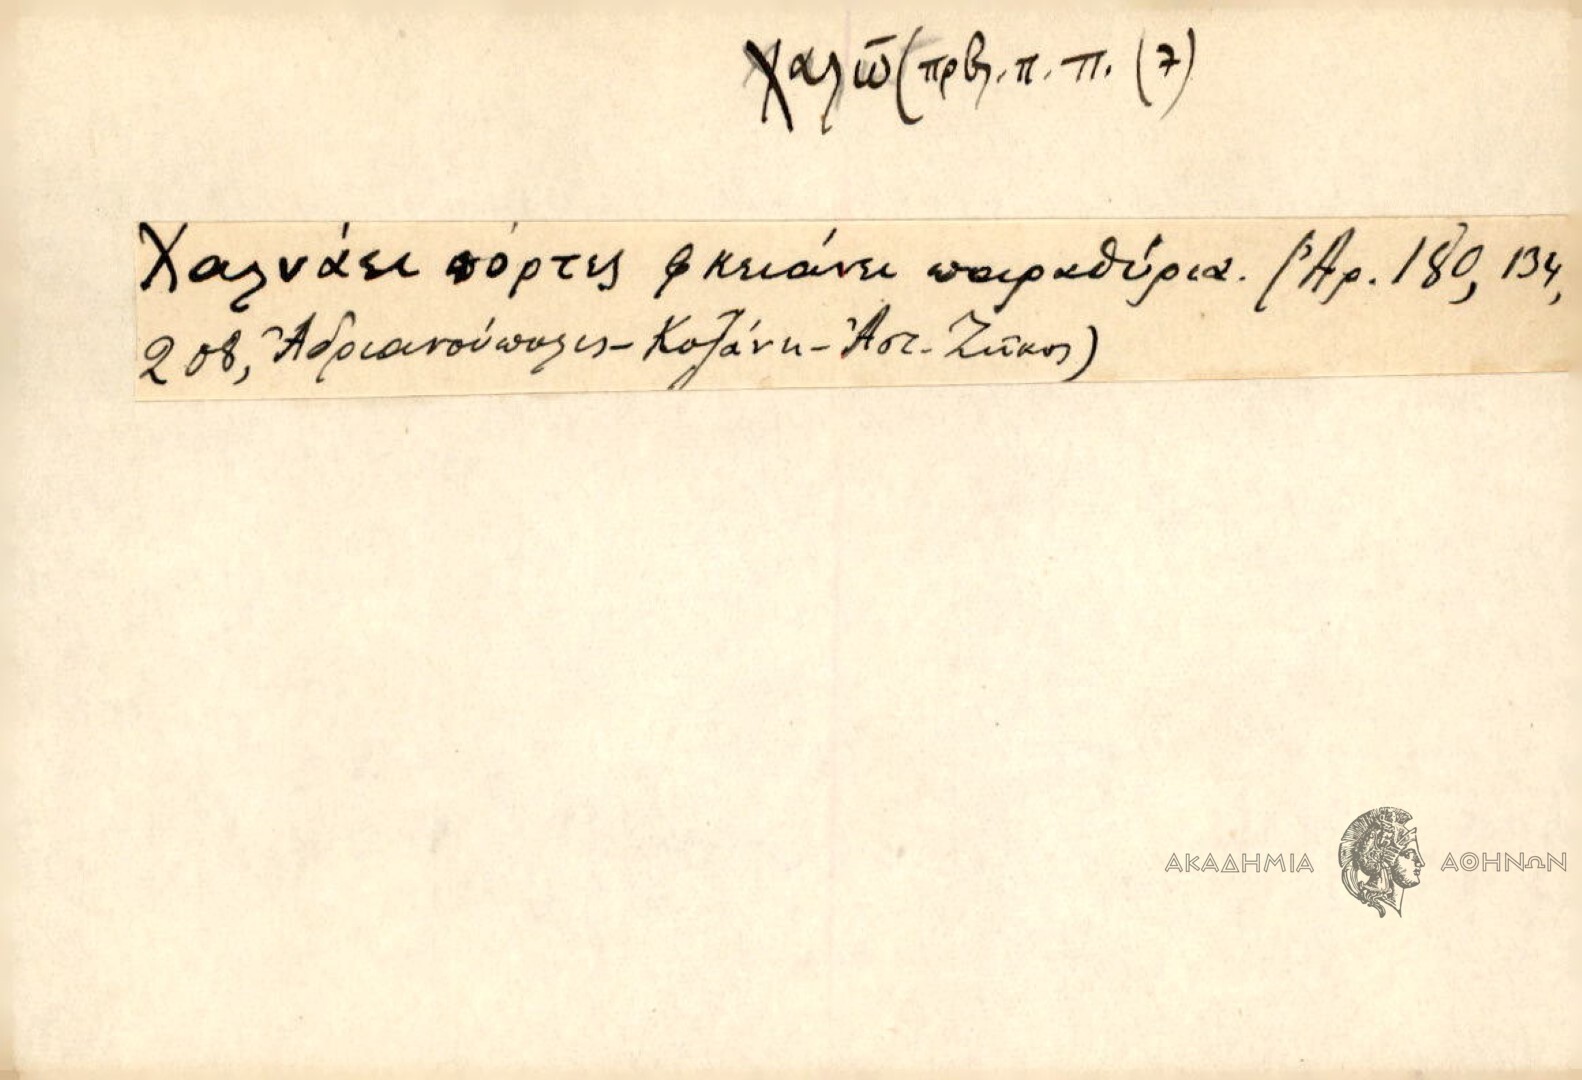 Χαλῶ (πρβλ. π. π. (7)
Χαλνάει πόρτες φκειάνει παραθύρια. (Ἀρ. 180, 134,
208, Ἀδριανούπολις - Κοζάνη - Ἀστ. Ζῆκος)
ΑΚΑΔΗΜΙΑ ΑΘΗΝΩΝ